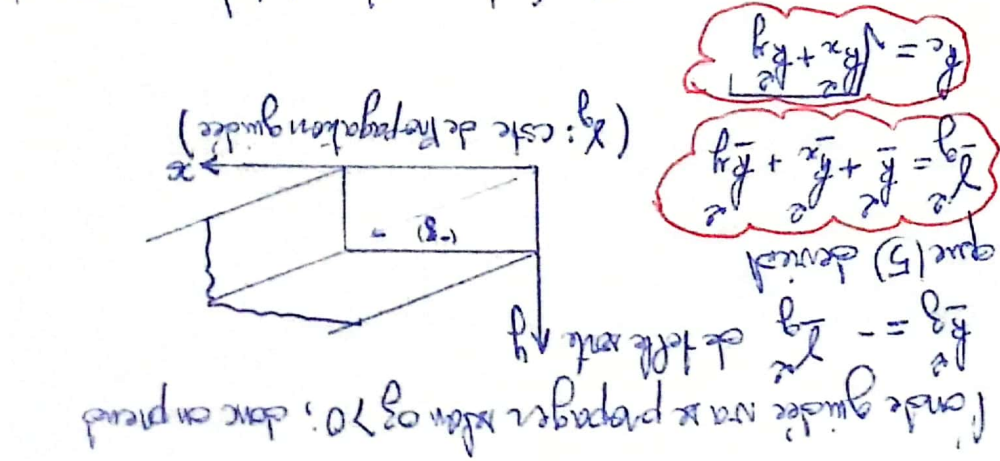 l'onde guidée va se propager selon oz>0; donc on prend
k̄z² = - γ̄g² de telle sorte
que (5) devient
γ̄g² = k̄² + k̄x² + k̄y²
kc = √(kx² + ky²)
y
x
(γg: cste de Propagation guidée)